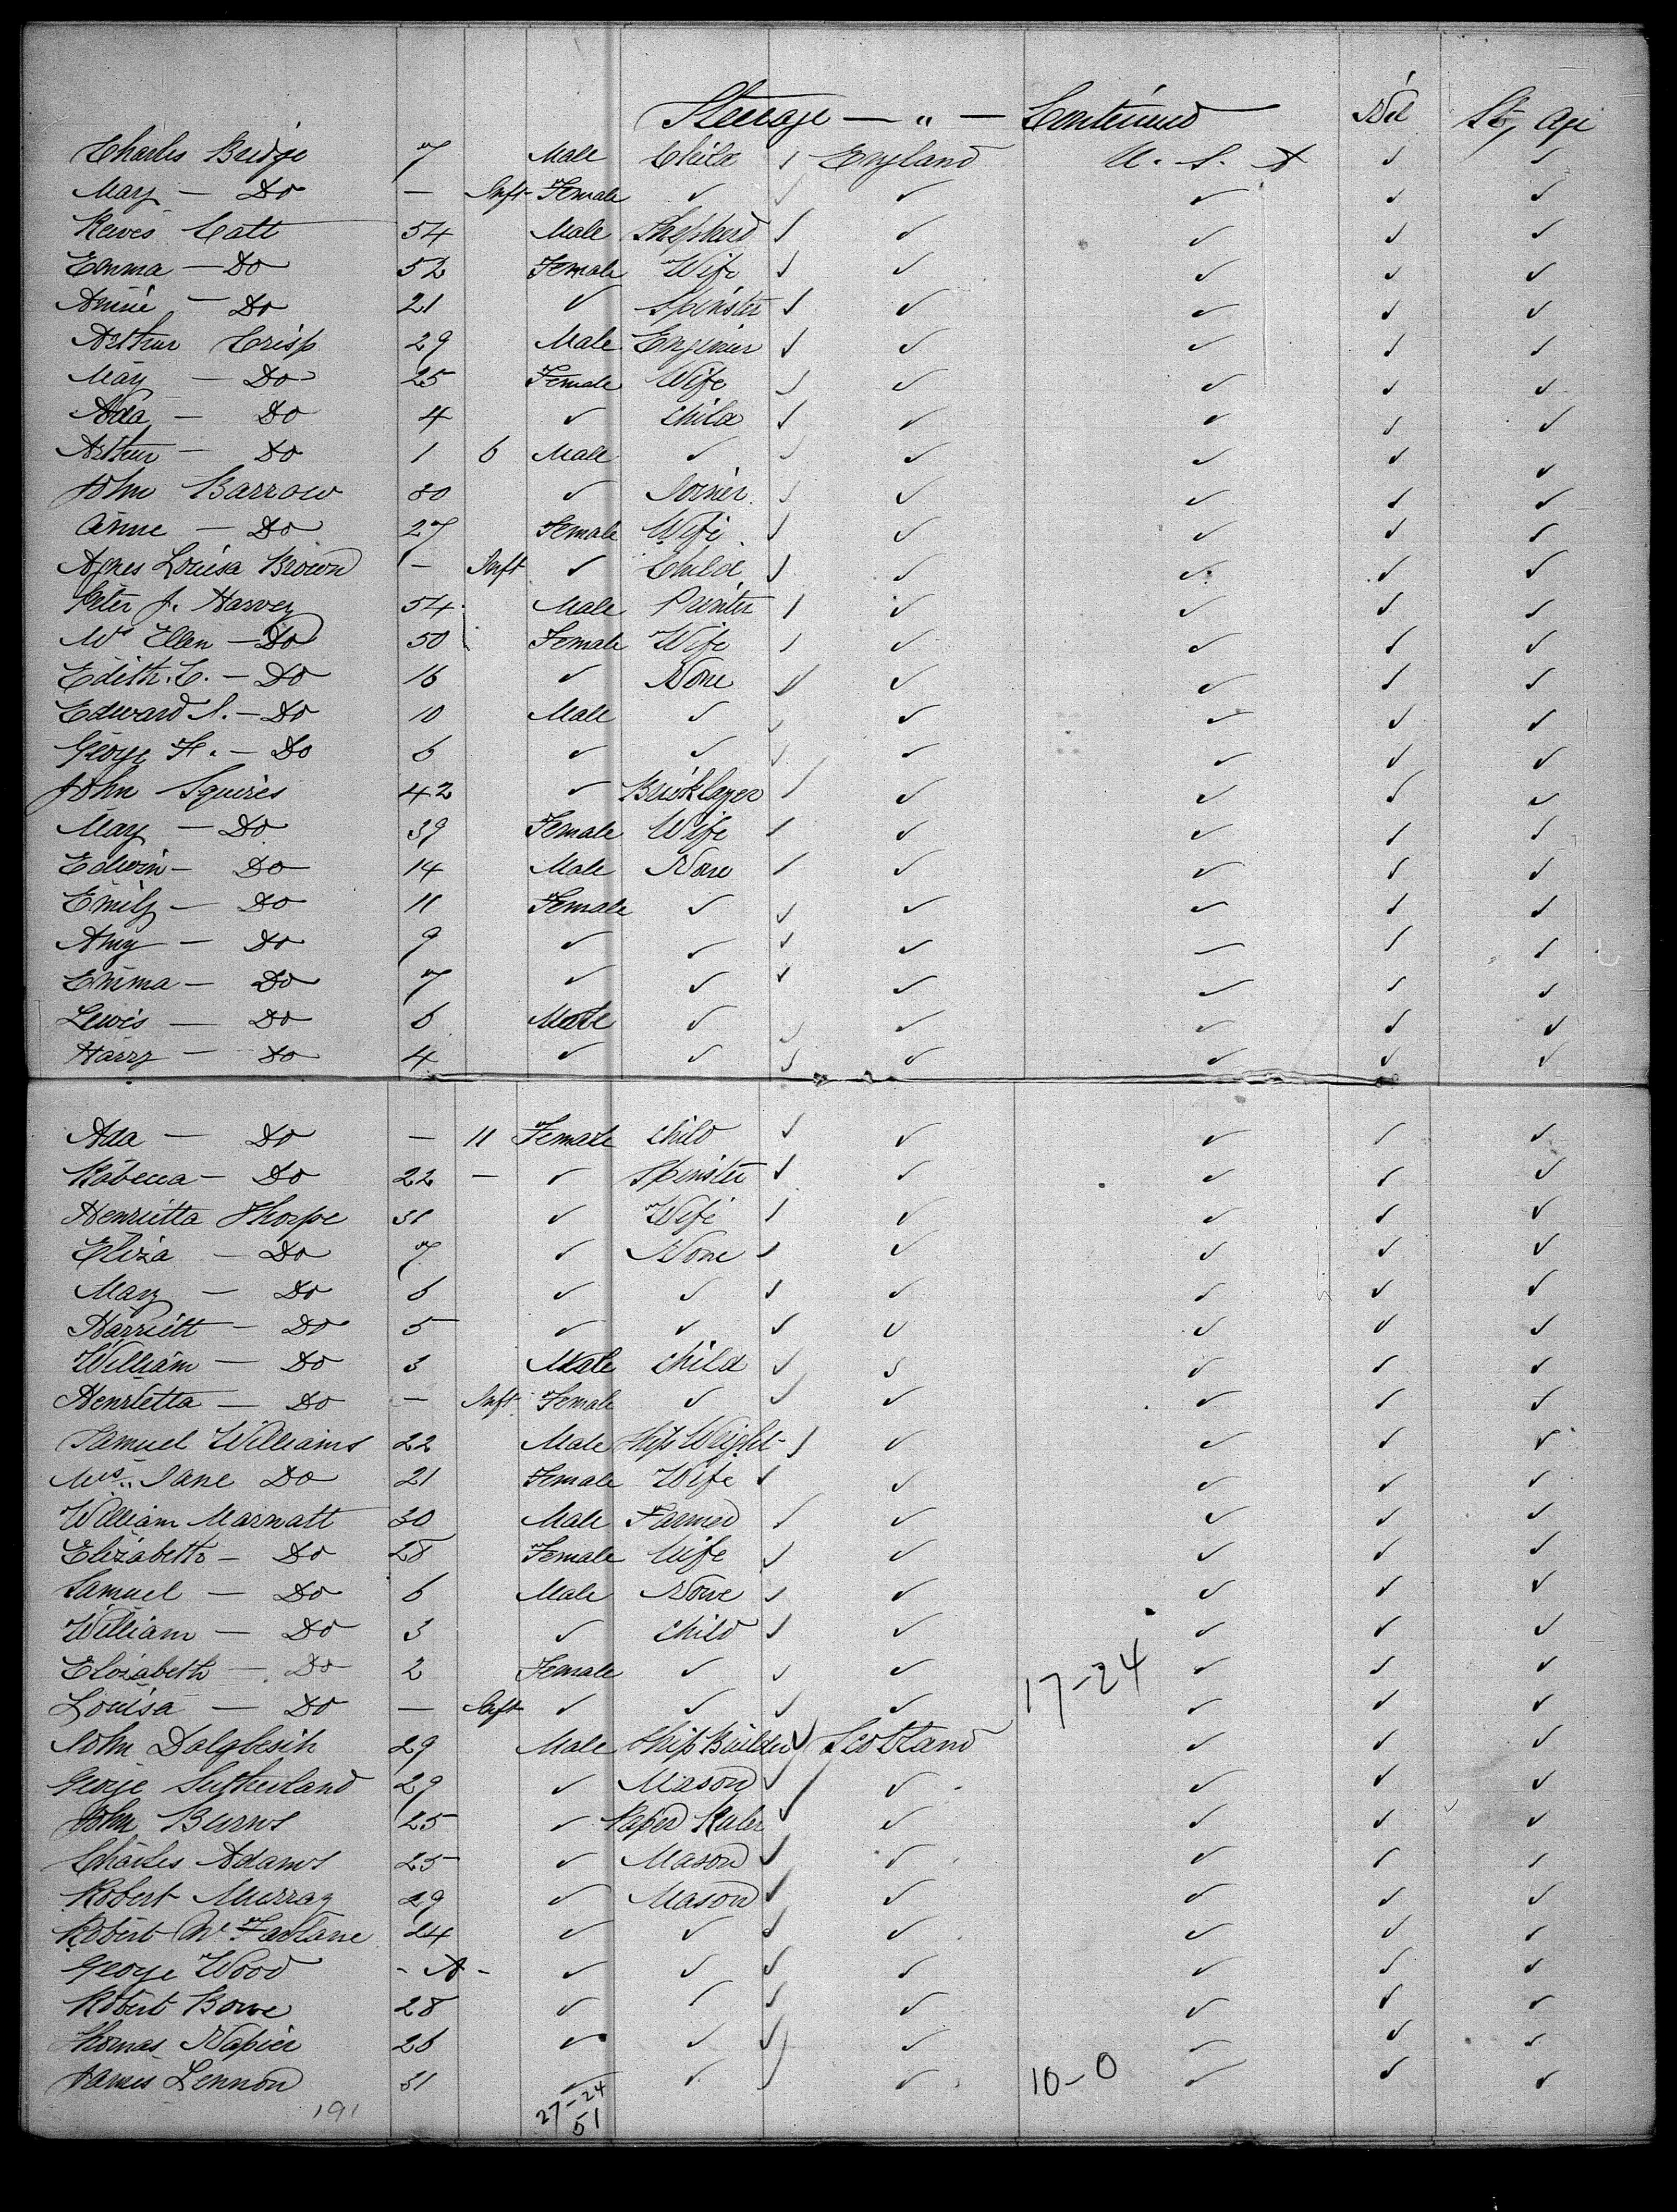 Steerage — " — Continued Nil St, Age
Charles Bridge 7 Male Child ✓ England U. S. A ✓ ✓
Mary — Do — Inft Female ✓ ✓ ✓ ✓ ✓ ✓
Catt 54 Male Shepherd ✓ ✓ ✓ ✓ ✓
Emma — Do 52 Female Wife ✓ ✓ ✓ ✓ ✓
Annie — Do 21 ✓ Spinster ✓ ✓ ✓ ✓ ✓
Arthur Crisp 29 Male Engineer ✓ ✓ ✓ ✓ ✓
Mary — Do 25 Female Wife ✓ ✓ ✓ ✓ ✓
Ada — Do 4 ✓ Child ✓ ✓ ✓ ✓ ✓
Arthur — Do 1 6 Male ✓ ✓ ✓ ✓ ✓ ✓
John Barrow 30 ✓ Joiner ✓ ✓ ✓ ✓ ✓
Anne — Do 27 Female Wife ✓ ✓ ✓ ✓ ✓
Agnes Louisa Brown — Inft ✓ Child ✓ ✓ ✓ ✓ ✓
Peter J. Harvey 54 Male Printer ✓ ✓ ✓ ✓ ✓
Mrs Ellen — Do 50 Female Wife ✓ ✓ ✓ ✓ ✓
Edith. E. — Do 16 ✓ None ✓ ✓ ✓ ✓ ✓
Edward S. — Do 10 Male ✓ ✓ ✓ ✓ ✓ ✓
George F. — Do 6 ✓ ✓ ✓ ✓ ✓ ✓ ✓
John Squires 42 ✓ Bricklayer ✓ ✓ ✓ ✓ ✓
Mary — Do 39 Female Wife ✓ ✓ ✓ ✓ ✓
Edwin — Do 14 Male None ✓ ✓ ✓ ✓ ✓
Emily — Do 11 Female ✓ ✓ ✓ ✓ ✓ ✓
Amy — Do 9 ✓ ✓ ✓ ✓ ✓ ✓ ✓
Emma — Do 7 ✓ ✓ ✓ ✓ ✓ ✓ ✓
Lewis — Do 6 Male ✓ ✓ ✓ ✓ ✓ ✓
Harry — Do 4 ✓ ✓ ✓ ✓ ✓ ✓ ✓
Ada — Do — 11 Female Child ✓ ✓ ✓ ✓ ✓
Rebecca — Do 22 — ✓ Spinster ✓ ✓ ✓ ✓ ✓
Henrietta Thorpe 31 ✓ Wife ✓ ✓ ✓ ✓ ✓
Eliza — Do 7 ✓ None ✓ ✓ ✓ ✓ ✓
Mary — Do 6 ✓ ✓ ✓ ✓ ✓ ✓ ✓
Harriett — Do 5 ✓ ✓ ✓ ✓ ✓ ✓ ✓
William — Do 3 Male Child ✓ ✓ ✓ ✓ ✓
Henrietta — Do — Inft Female ✓ ✓ ✓ ✓ ✓ ✓
Samuel Williams 22 Male Ship Wright ✓ ✓ ✓ ✓ ✓
Mrs Jane Do 21 Female Wife ✓ ✓ ✓ ✓ ✓
William Marnatt 30 Male Farmer ✓ ✓ ✓ ✓ ✓
Elizabeth — Do 28 Female Wife ✓ ✓ ✓ ✓ ✓
Samuel — Do 6 Male None ✓ ✓ ✓ ✓ ✓
William — Do 3 ✓ Child ✓ ✓ ✓ ✓ ✓
Elizabeth — Do 2 Female ✓ ✓ ✓ 17-24 ✓ ✓ ✓
Louisa — Do — Inft ✓ ✓ ✓ ✓ ✓ ✓ ✓
John 29 Male Ship Builder ✓ Scotland ✓ ✓ ✓
George Sutherland 29 ✓ Mason ✓ ✓ ✓ ✓ ✓
John Burns 25 ✓ Paper Ruler ✓ ✓ ✓ ✓ ✓
Charles Adams 25 ✓ Mason ✓ ✓ ✓ ✓ ✓
Robert Murray 29 ✓ Mason ✓ ✓ ✓ ✓ ✓
Robert McFarlane 24 ✓ ✓ ✓ ✓ ✓ ✓ ✓
George Wood - A - ✓ ✓ ✓ ✓ ✓ ✓ ✓
Robert Bowe 28 ✓ ✓ ✓ ✓ ✓ ✓ ✓
Thomas Napier 26 ✓ ✓ ✓ ✓ ✓ ✓ ✓
James Lennon 31 ✓ ✓ ✓ ✓ 10-0 ✓ ✓ ✓
191 27-24
51